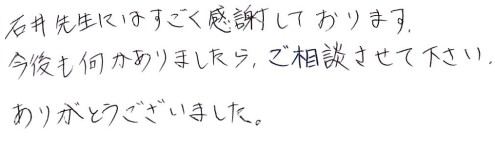 石井先生にはすごく感謝しております.
今後も何かありましたら, ご相談させて下さい.
ありがとうございました。